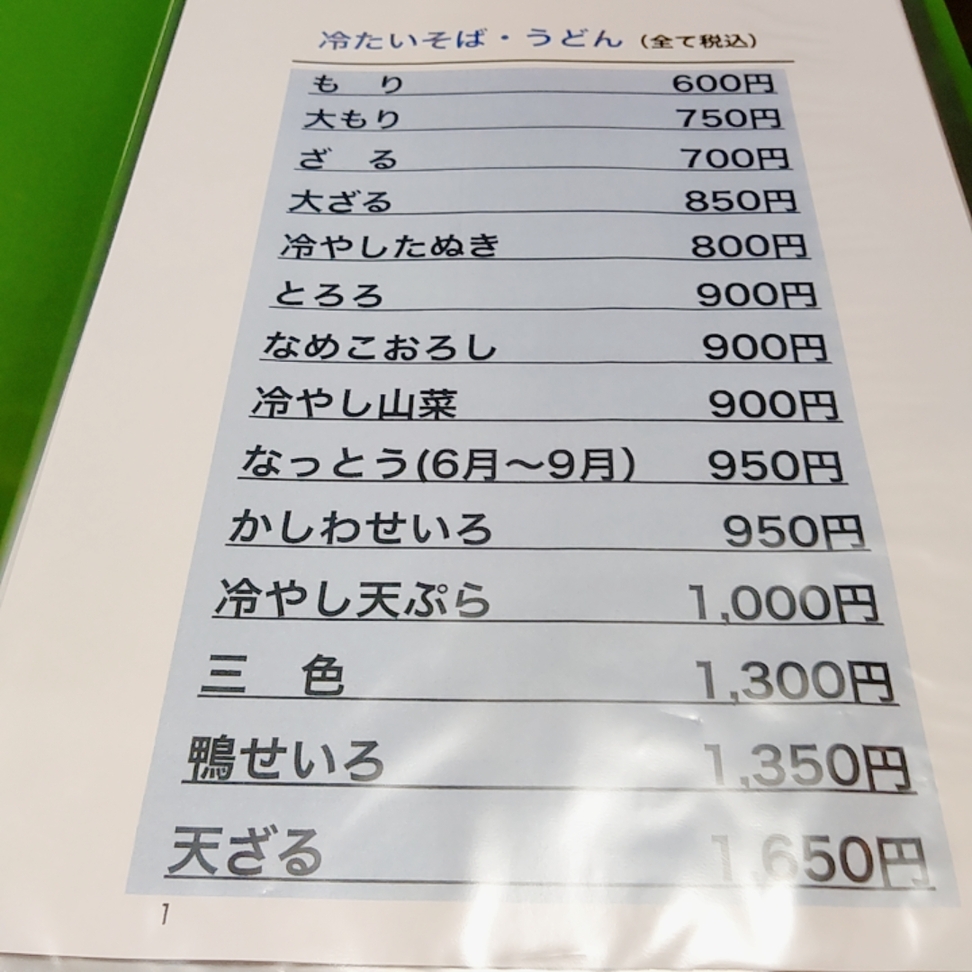 冷たいそば・うどん（全て税込）
も　り 600円
大もり 750円
ざ　る 700円
大ざる 850円
冷やしたぬき 800円
とろろ 900円
なめこおろし 900円
冷やし山菜 900円
なっとう(6月～9月） 950円
かしわせいろ 950円
冷やし天ぷら 1,000円
三　色 1,300円
鴨せいろ 1,350円
天ざる 1,650円
1